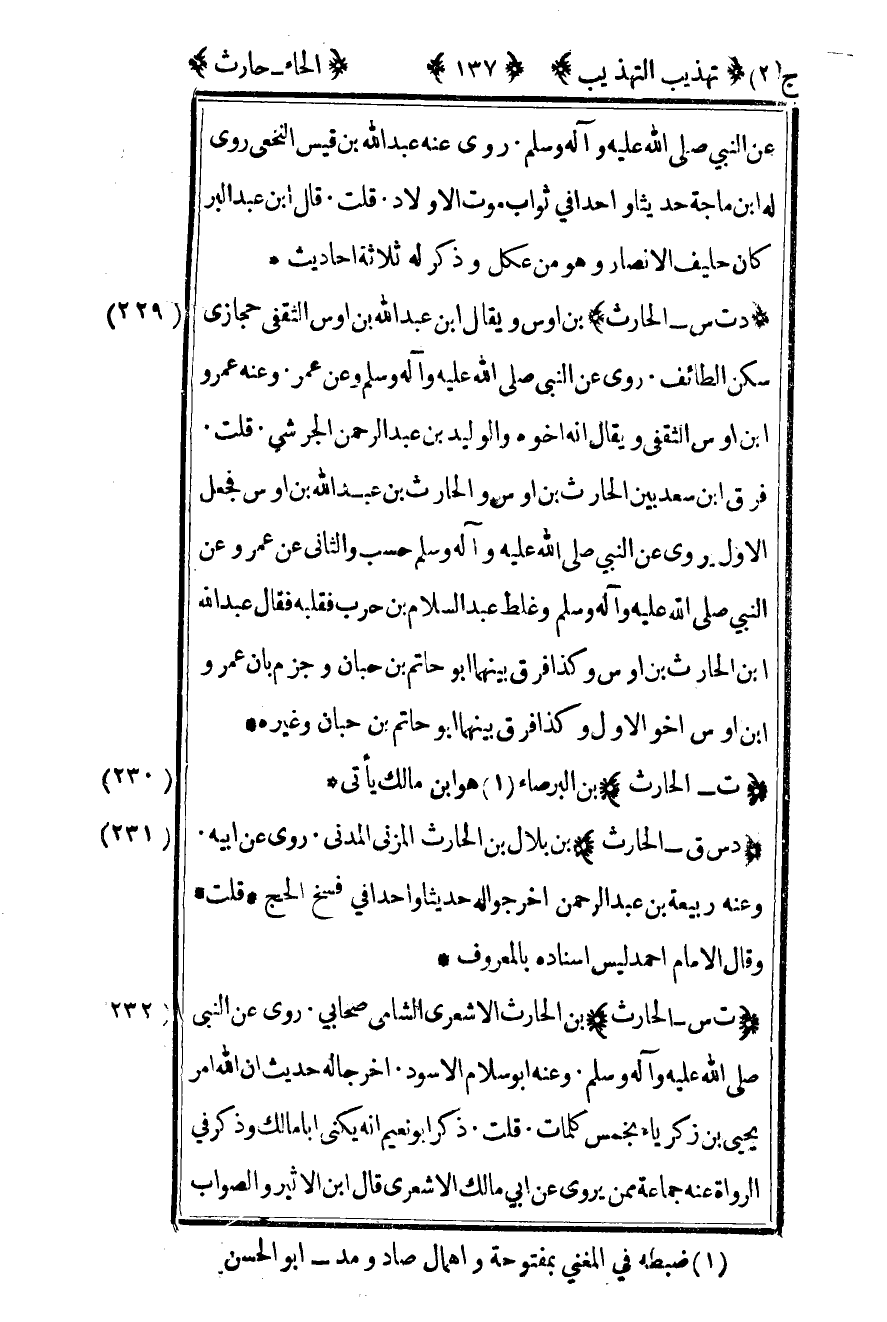 ج (٢) ﴿ تهذيب التهذيب ﴾ ﴿ ١٣٧ ﴾ ﴿ الحاء ـ حارث ﴾
عن النبي صلى الله عليه و آله وسلم · روى عنه عبدالله بن قيس النخعى روى
له ابن ماجة حديثا واحدا في ثواب موت الاولاد · قلت · قال ابن عبدالبر
كان حليف الانصار و هو من عكل و ذكر له ثلاثة احاديث *
﴿ د ت س ـ الحارث ﴾ بن اوس و يقال ابن عبدالله بن اوس الثقفى حجازى (٢٢٩)
سكن الطائف · روى عن النبى صلى الله عليه وآله وسلم وعن عمر · وعنه عمرو
ابن اوس الثقفى و يقال انه اخوه والوليد بن عبدالرحمن الجرشي · قلت ·
فرق ابن سعد بين الحارث بن اوس و الحارث بن عبدالله بن اوس فجعل
الاول يروى عن النبي صلى الله عليه و آله وسلم حسب والثانى عن عمر و عن
النبي صلى الله عليه وآله وسلم وغلط عبدالسلام بن حرب فقلبه فقال عبدالله
ابن الحارث بن اوس و كذا فرق بينهما ابو حاتم بن حبان و جزم بان عمرو
ابن اوس اخو الاول و كذا فرق بينهما ابو حاتم بن حبان وغيره *
﴿ ت ـ الحارث ﴾ بن البرصاء (١) هو ابن مالك يأتى * (٢٣٠)
﴿ د س ق ـ الحارث ﴾ بن بلال بن الحارث المزنى المدنى · روى عن ابيه · (٢٣١)
وعنه ربيعة بن عبدالرحمن اخرجوا له حديثا واحدا في فسخ الحج * قلت *
وقال الامام احمد ليس اسناده بالمعروف *
﴿ ت س ـ الحارث ﴾ بن الحارث الاشعرى الشامى صحابي · روى عن النبى (٢٣٢
صلى الله عليه وآله وسلم · وعنه ابو سلام الاسود · اخرجا له حديث ان الله امر
يحيى بن زكرياء بخمس كلمات · قلت · ذكر ابو نعيم انه يكنى ابا مالك وذكر في
الرواة عنه جماعة ممن يروى عن ابي مالك الاشعرى قال ابن الاثير و الصواب
(١) ضبطه في المغني بمفتوحة و اهمال صاد و مد ـ ابو الحسن